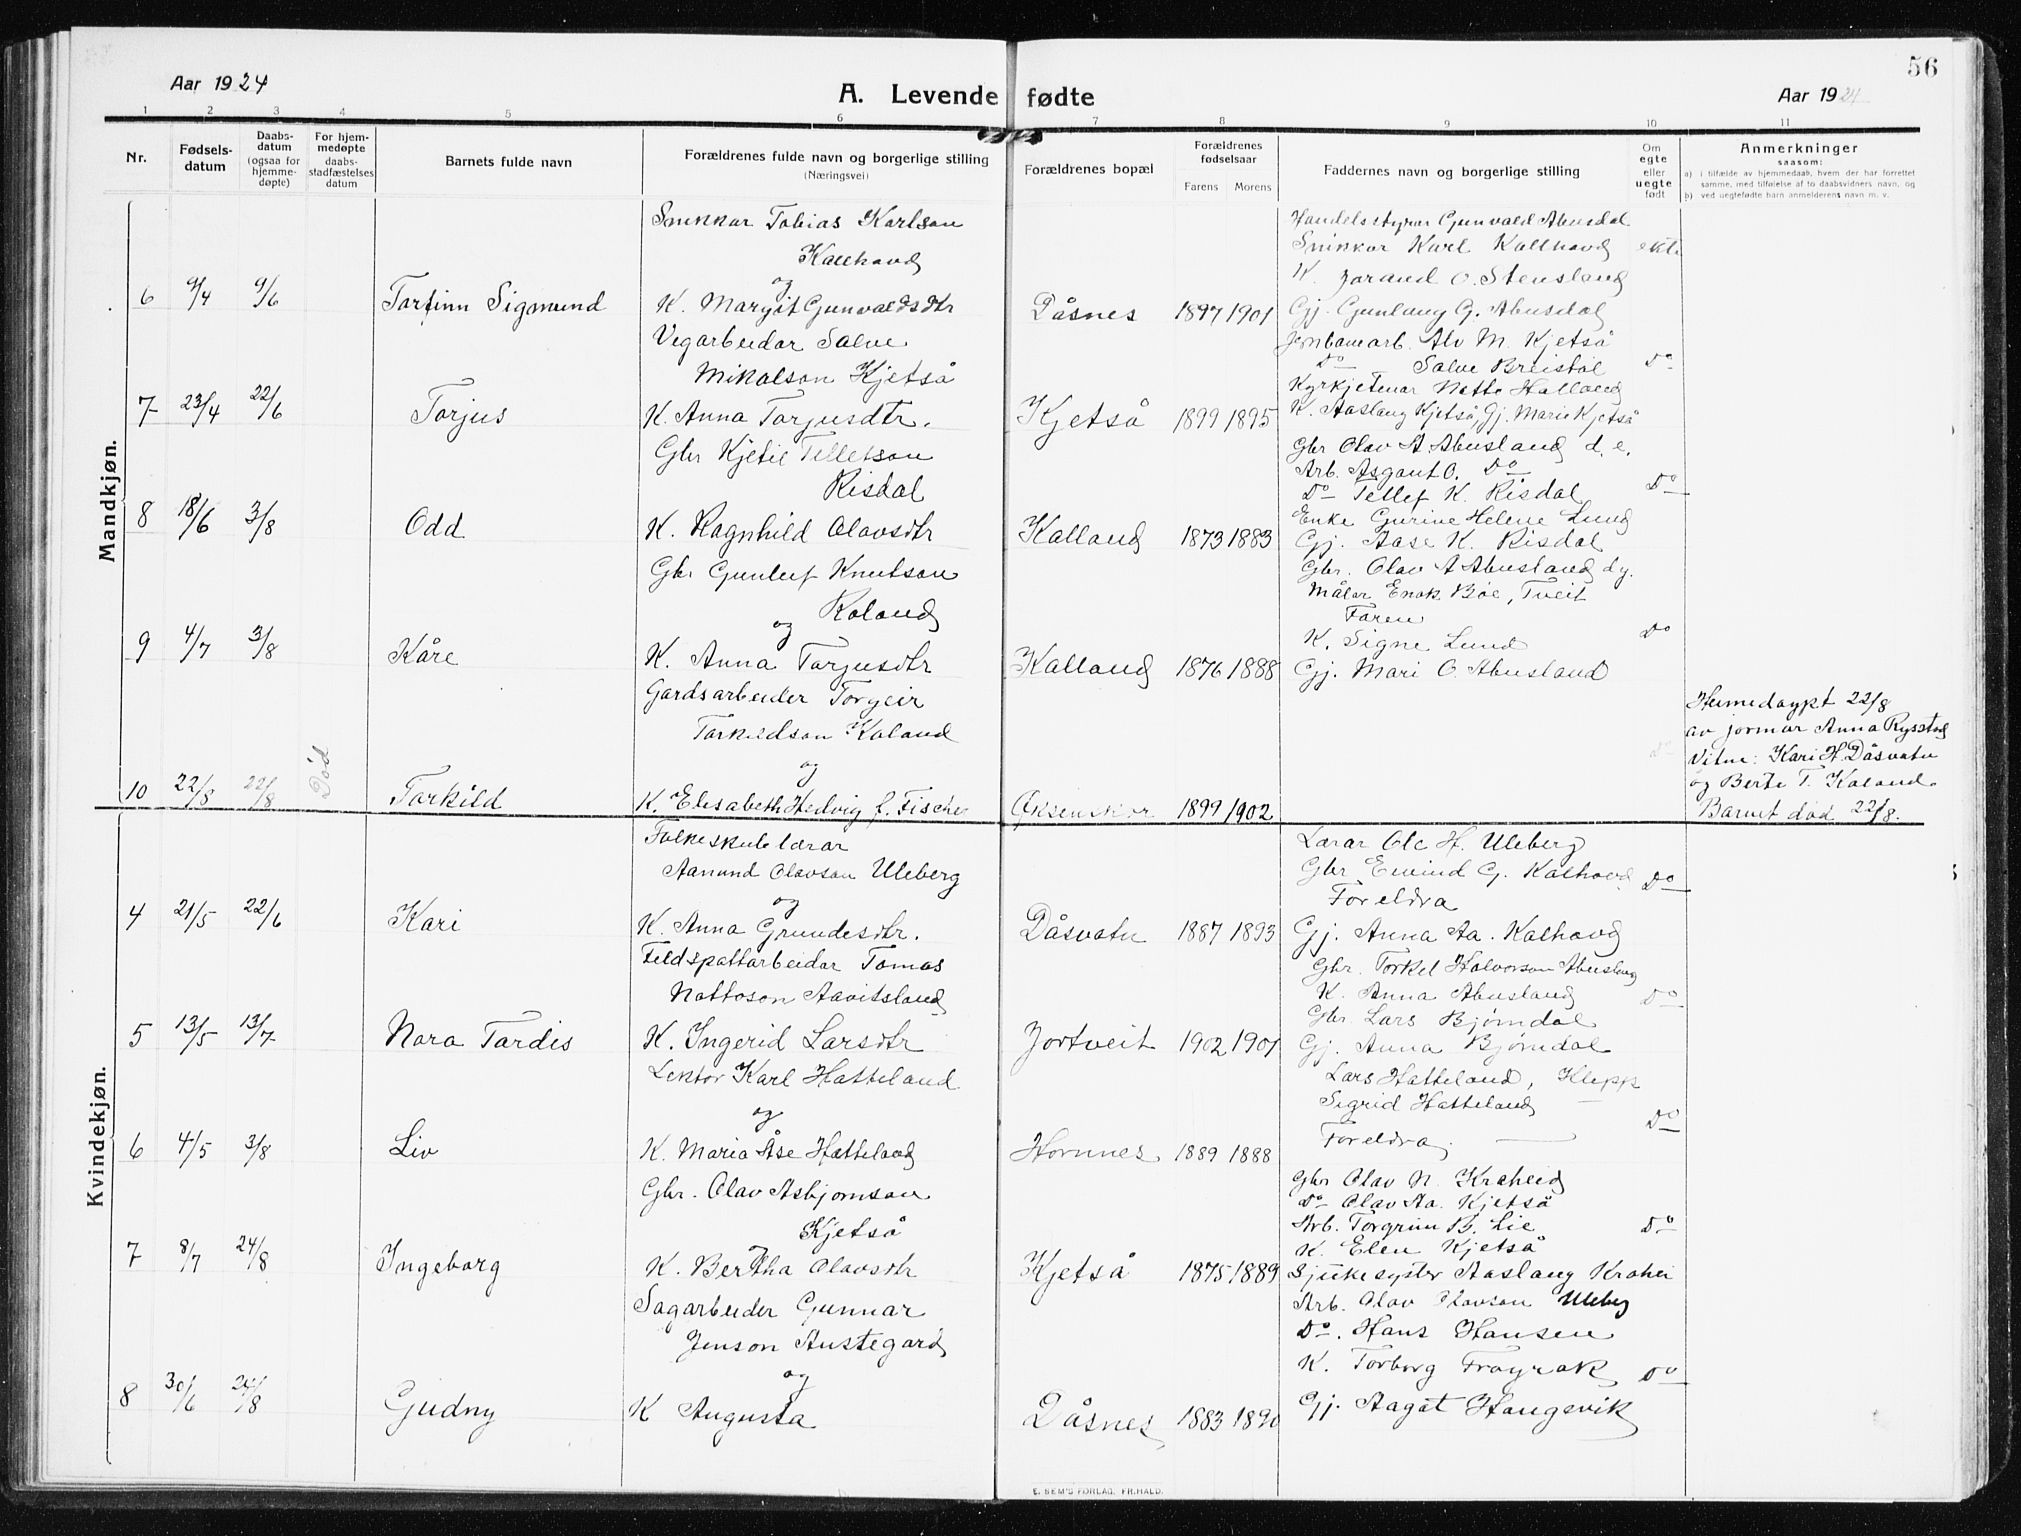 56
Aar 1924
A. Levende fødte
Aar 1924
1 2 3 4 5 6 7 8 9 10 11
Nr.
Fødsels-
datum
Daabs-
datum
(ogsaa for
hjemme-
døpte)
For hjem-
medøpte
daabs-
stadfæstelses
datum
Barnets fulde navn
Forældrenes fulde navn og borgerlige stilling
(Næringsvei)
Forældrenes bopæl
Forældrenes
fødselsaar
Farens Morens
Faddernes navn og borgerlige stilling
Om
egte
eller
uegte
født
Anmerkninger
saasom:
a) i tilfælde av hjemmedaab, hvem der har forrettet
samme, med tilføielse af to daabsvidners navn, og
b) ved uegtefødte barn anmelderens navn m. v.
Mandkjøn.
6 9/4 9/6 Torfinn Sigmund
Snikkar Tobias Karlson
Kallhovd
og
K. Margit Gunvaldsdtr
Dåsnes 1897 1901
Handelsstyrar Gunvald Abusdal
Snikkar Karl Kallhovd
K. Jorand O. Stensland
Gj. Gunlaug G. Abusdal
ekte
7 23/4 22/6 Torjus
Vegarbeidar Salve
Mikalson Kjetså
K. Anna Torjusdtr.
Kjetså 1899 1895
Jernbanearb. Alv M. Kjetså
Do Salve Breistøl
Kyrkjetenar Notto Halland
K. Aaslaug Kjetså, Gj. Marie Kjetså
Do
8 18/6 3/8 Odd
Gbr Kjetil Telletson
Risdal
K. Ragnhild Olavsdtr
Kalland 1873 1883
Gbr Olav A Abusland d. e.
Arb. Asgaut O. Do
Do Tellef K. Risdal
Enke Gurine Helene Lund
Gj. Aase K. Risdal
Do
9 4/7 3/8 Kåre
Gbr Gunleif Knutson
Koland
og
K. Anna Torjusdtr
Kalland 1876 1888
Gbr. Olav A Abusland d y.
Målar Enok Bøe, Tveit
Faren
K. Signe Lund
Gj. Mari O Abusland
Do
10 22/8 22/8 Død Torkild
Gardsarbeider Torgeir
Torkildson Koland
og
K. Elisabeth Hedvig f. Fischer
1899 1902
Do
Heimedøypt 22/8
av jormor Anna Rysstad
Vitne: Kari H. Dåsvatn
og Berte T. Koland.
Barnet død 22/8.
Kvindekjøn.
4 21/5 22/6 Kari
Folkeskulelærar
Aanund Olavson Uleberg
og
K. Anna Grundesdtr.
Dåsvatn 1887 1893
Lærar Ole H. Uleberg
Gbr Eivind G. Kalhovd
Foreldra
Gj. Anna Aa. Kalhovd
Do
5 13/5 13/7 Nora Tordis
Feldspattarbeidar Tomas
Nottoson Aavitsland
K. Ingerid Larsdtr
Jortveit 1902 1901
Gbr. Torkel Halvorson Abusland
K. Anna Abusland
Gbr Lars Bjørndal
Gj. Anna Bjørndal
Do
6 4/5 3/8 Liv
Lektor Karl Hatteland
og
K. Maria Åse Hatteland
Hornnes 1889 1888
Lars Hatteland, Klepp
Sigrid Hatteland
Foreldra.
Do
7 8/7 24/8 Ingeborg
Gbr. Olav Asbjørnson
Kjetså
og
K. Bertha Olavsdtr
Kjetså 1875 1889
Gbr Olav N. Kroheid
Do Olav Aa. Kjetså
Arb. Torgrim B. Lie
K. Elen Kjetså
Sjukesyster Aaslaug Krohei
Do
8 30/6 24/8 Gudny
Sagarbeider Gunnar
Jenson Austegard
og
K Augusta
Dåsnes 1883 1890
Arb. Olav Olavson Uleberg
Do. Hans Hansen
K. Torborg Frøyrak
Gj. Aagot Haugsvik
Do
E. SEM'S FORLAG, FR.HALD.